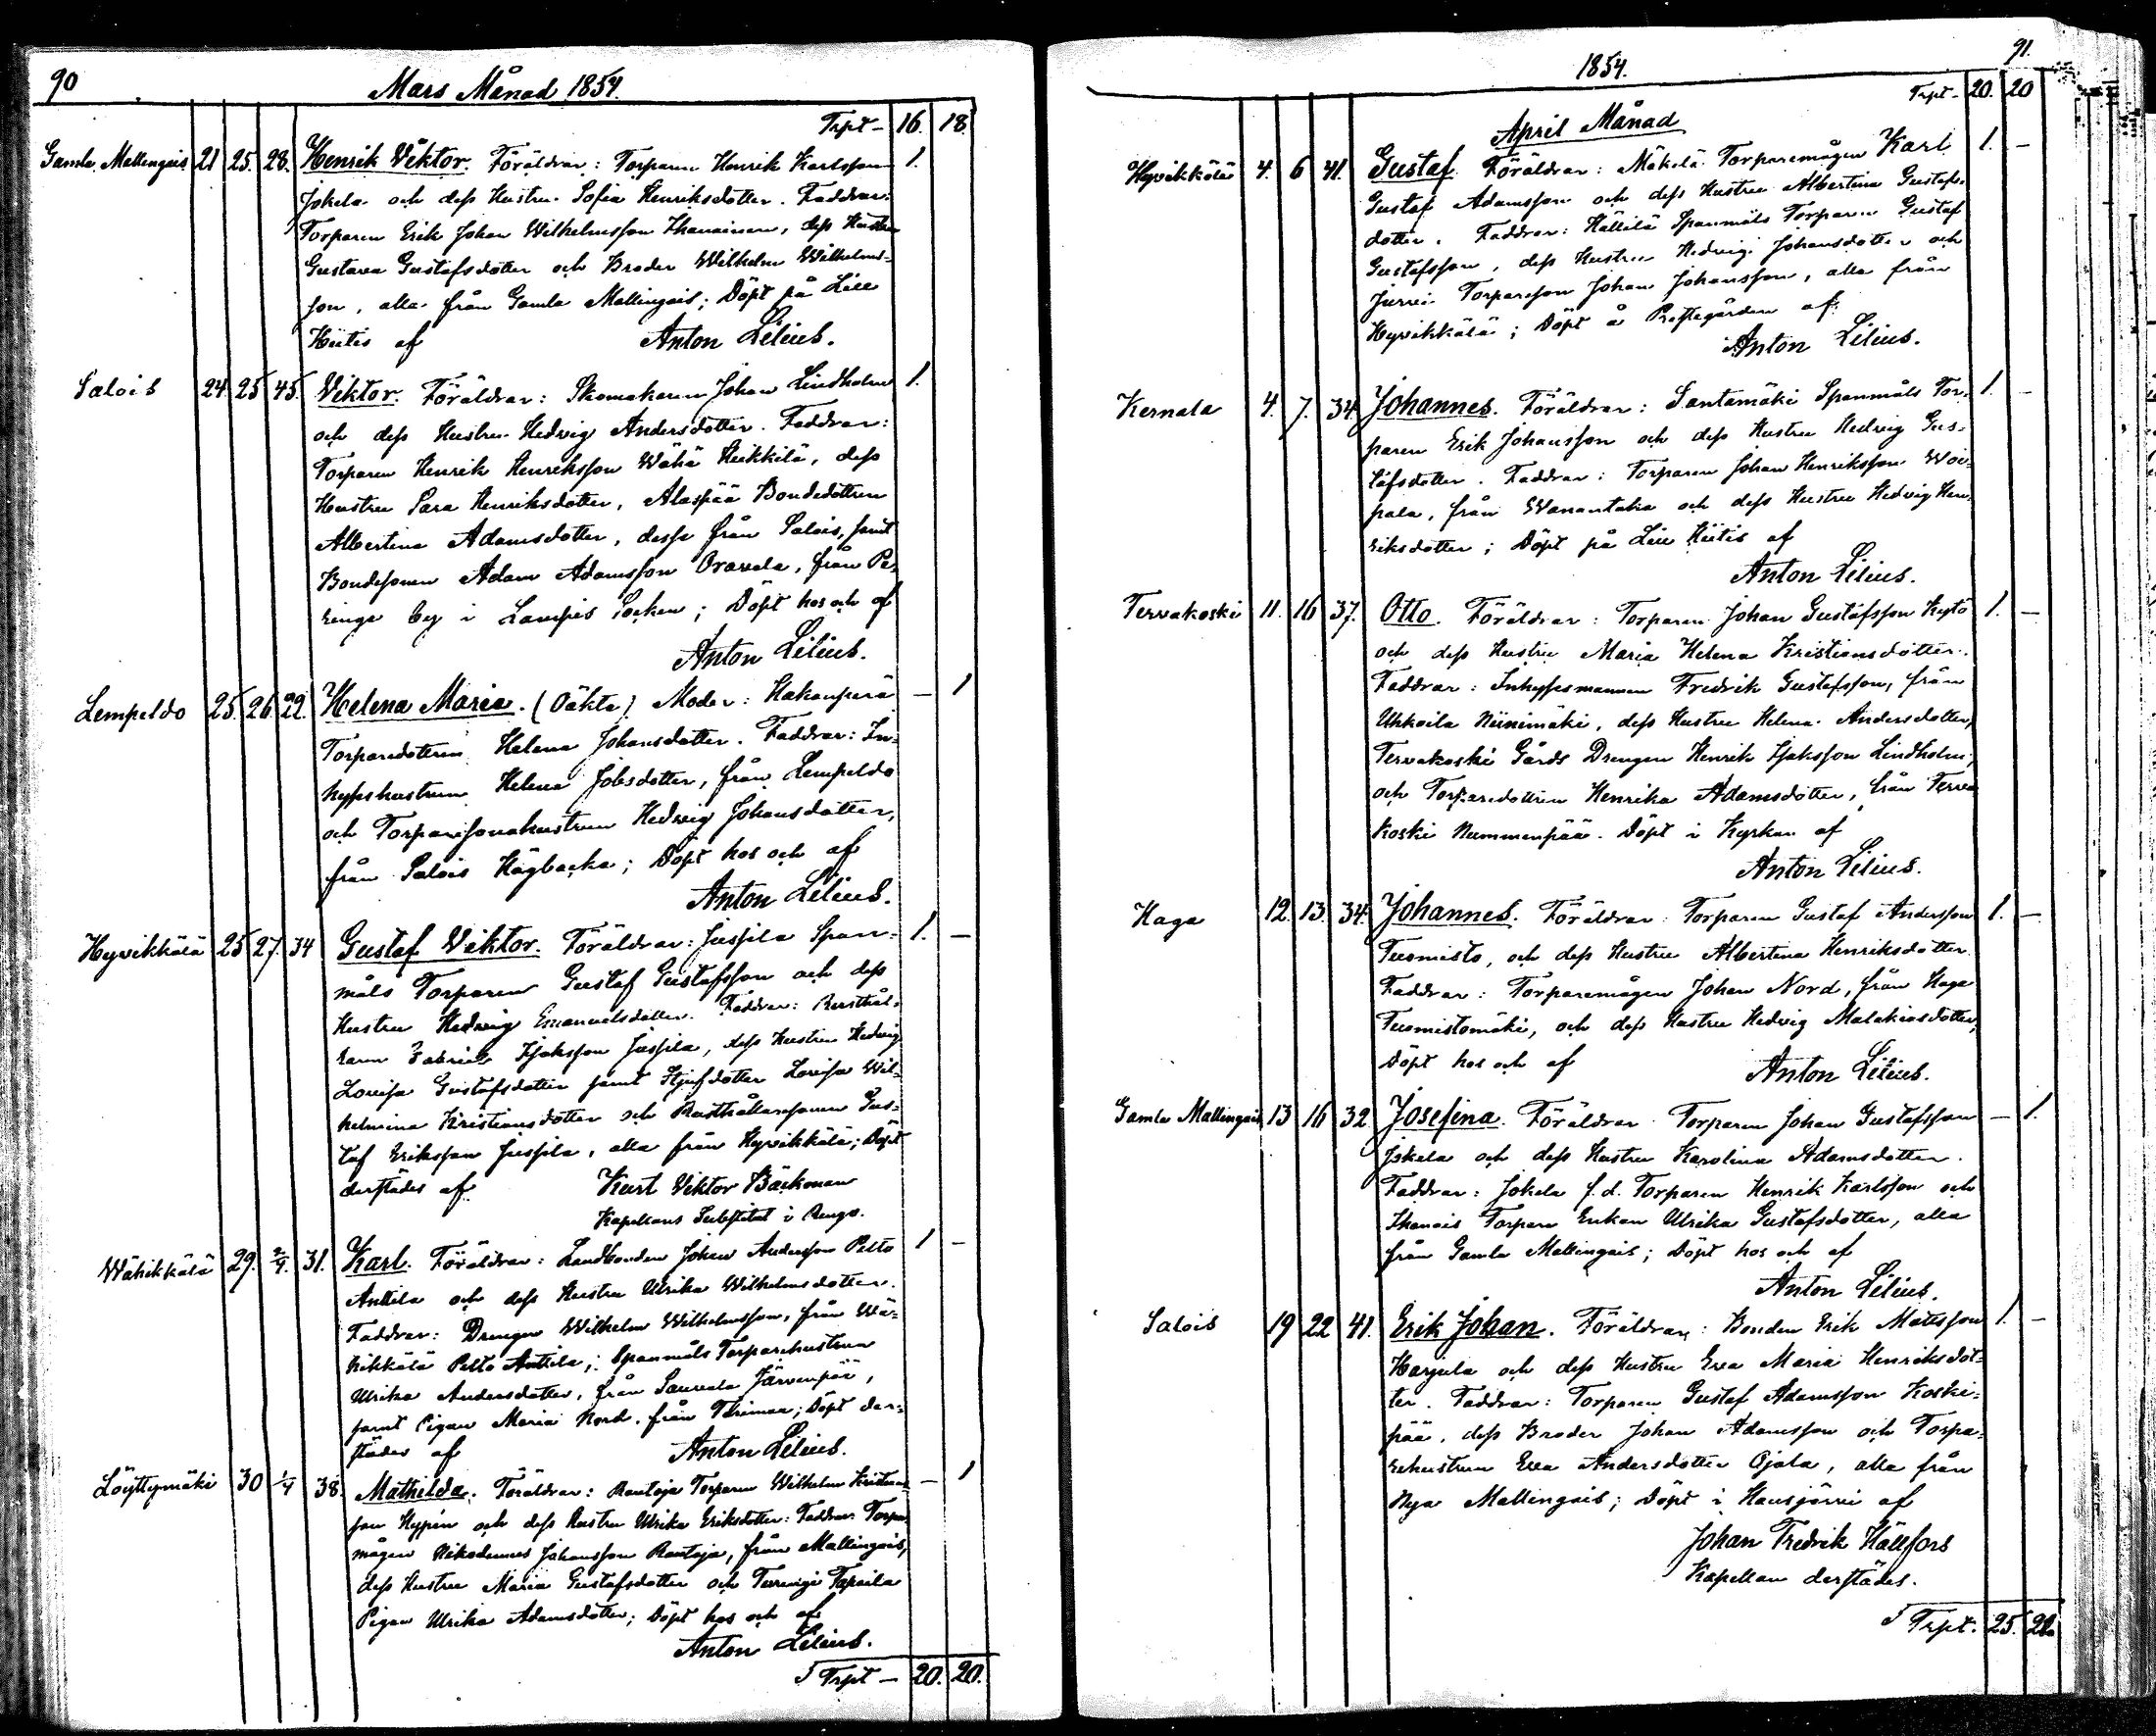 90
Mars Månad 1854.
Trpt - 16. 18.
Gamla Mallingais 21 25. 28. Henrik Viktor. Föräldrar: Torparen Henrik Karlsson 1.
Jokela och dess Hustru Sofia Henriksdotter. Faddrar:
Torparen Erik Johan Wilhelmsson Ihanainen, dess Hustru
Gustava Gustafsdotter och Broder Wilhelm Wilhelms-
son, alla från Gamla Mallingais; Döpt på Lill
Hiitis af Anton Lilius.
Salois 24. 25 45. Viktor. Föräldrar: Skomakaren Johan Lindholm 1.
och dess Hustru Hedvig Andersdotter. Faddrar:
Torparen Henrik Henriksson Wähä Heikkilä, dess
Hustru Sara Henriksdotter, Alaspää Bondedottren
Albertina Adamsdotter, desse från Salois, samt
Bondesonen Adam Adamsson Oravala, från Pa-
ringe by i Lampis Socken; Döpt hos och af
Anton Lilius.
Lempeldo 25. 26. 22. Helena Maria. (Oäkta) Moder: Hakanperä — 1
Torparedottren Helena Johansdotter. Faddrar: In-
hyseshustrun Helena Jobsdotter, från Lempeldo
och Torparesonahustrun Hedvig Johansdotter,
från Salois Högbacka; Döpt hos och af
Anton Lilius.
Hyvikkälä 25 27. 34 Gustaf Viktor. Föräldrar: Jussila Span- 1. —
måls Torparen Gustaf Gustafsson och dess
Hustru Hedvig Emanuelsdotter. Faddrar: Rusthål-
laren Gabriel Isaksson Jussila, dess Hustru Hedvig
Lovisa Gustafsdotter samt Styfdotter Lovisa Wil-
helmina Kristiansdotter och Rusthållaresonen Gus-
taf Eriksson Jussila, alla från Hyvikkälä; Döpt
derstädes af Kurt Viktor Bäckman
Kapellans Substitut i Rengo.
Wähikkälä 29. 2/4. 31. Karl. Föräldrar: Landbonden Johan Andersson Pelto 1 —
Anttila och dess Hustru Ulrika Wilhelmsdotter.
Faddrar: Drengen Wilhelm Wilhelmsson, från Wä-
hikkälä Pelto Anttila; Spanmåls Torparehustrun
Ulrika Andersdotter, från Saurala Järvenpää,
samt Pigan Maria Nord. från ; Döpt der-
städes af Anton Lilius.
Löyttymäki 30 1/4 38. Mathilda. Föräldrar: Rantoja Torparen Wilhelm Kristians- — 1
son Hypén och dess Hustru Ulrika Eriksdotter. Faddrar: Torpare-
mågen Nikodemus Johansson Rantoja, från Mallingais,
dess Hustru Maria Gustafsdotter och Turengi Tapaila
Pigan Ulrika Adamsdotter; Döpt hos och af
Anton Lilius.
Trpt — 20. 20.
1854.
91.
Trpt - 20. 20
April Månad
Hyvikkälä 4. 6 41. Gustaf. Föräldrar: Mäkelä Torparemågen Karl 1. —
Gustaf Adamsson och dess Hustru Albertina Gustafs-
dotter. Faddrar: Hällilä Spanmåls Torparen Gustaf
Gustafsson, dess Hustru Hedvig Johansdotter och
Jurvi Torpareson Johan Johansson, alla från
Hyvikkälä; Döpt å Prestgården af
Anton Lilius.
Kernala 4. 7. 34. Johannes. Föräldrar: Santamäki Spanmåls Tor- 1. —
paren Erik Johansson och dess Hustru Hedvig Gus-
tafsdotter. Faddrar: Torparen Johan Henriksson Woi-
pala, från Wanantaka och dess Hustru Hedvig Hen-
riksdotter; Döpt på Lill Hiitis af
Anton Lilius.
Tervakoski 11. 16 37. Otto. Föräldrar: Torparen Johan Gustafsson Kytö 1. —
och dess Hustru Maria Helena Kristiansdotter.
Faddrar: Inhysesmannen Fredrik Gustafsson, från
Uhkoila Niinimäki, dess Hustru Helena Andersdotter,
Tervakoski Gårds Drengen Henrik Isaksson Lindholm,
och Torparedottren Henrika Adamsdotter, från Terva
koski Nummenpää. Döpt i Kyrkan af
Anton Lilius.
Haga 12. 13. 34. Johannes. Föräldrar: Torparen Gustaf Andersson 1. —
Tuomisto, och dess Hustru Albertina Henriksdotter
Faddrar: Torparemågen Johan Nord, från Haga
Tuomistomäki, och dess Hustru Hedvig Malakiasdotter,
Döpt hos och af Anton Lilius.
Gamla Mallingais 13 16 32 Josefina. Föräldrar Torparen Johan Gustafsson — 1.
Jokela och dess Hustru Karolina Adamsdotter.
Faddrar: Jokela f.d. Torparen Henrik Karlsson och
Ihanais Torpare Enkan Ulrika Gustafsdotter, alla
från Gamla Mallingais; Döpt hos och af
Anton Lilius.
Salois 19 22 41. Erik Johan. Föräldrar: Bonden Erik Mattsson 1. —
Harjula och dess Hustru Eva Maria Henriksdot-
ter. Faddrar: Torparen Gustaf Adamsson Koski-
pää, dess Broder Johan Adamsson och Torpa-
rehustrun Eva Andersdotter Ojala, alla från
Nya Mallingais; Döpt i Hausjärvi af
Johan Fredrik Hällfors
Kapellan derstädes.
Trpt. 25. 21.